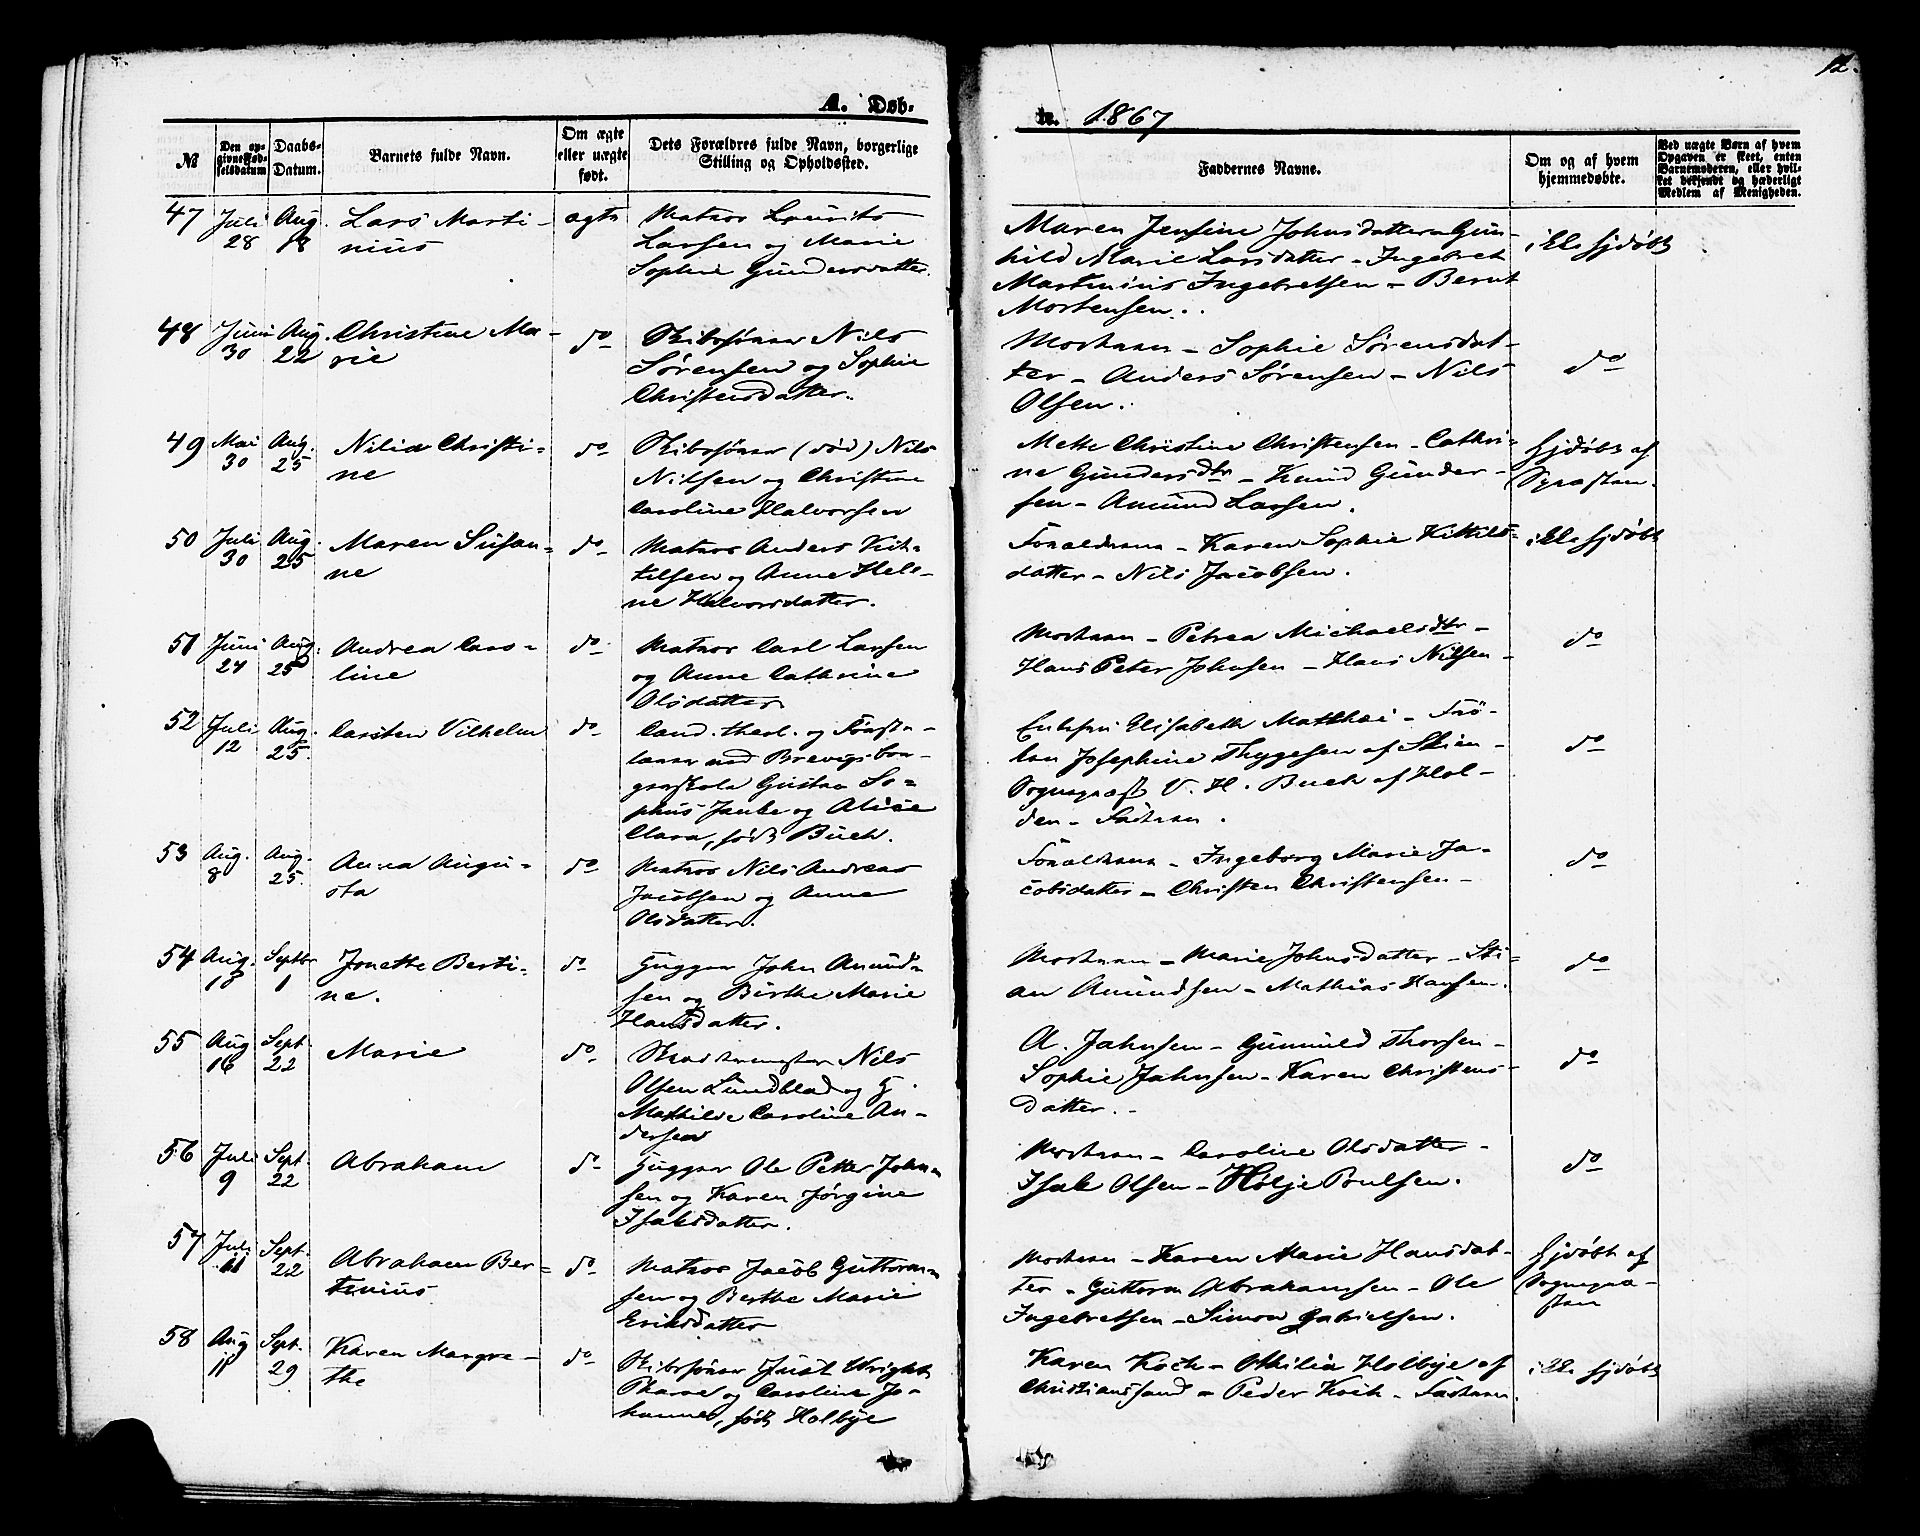 12.
A. Døb-
te. 1867
№
Den op-
givne Fød-
selsdatum
Daabs-
Datum.
Barnets fulde Navn.
Om ægte
eller uægte
født.
Dets Forældres fulde Navn, borgerlige
Stilling og Opholdssted.
Faddernes Navne.
Om og af hvem
hjemmedøbte.
Ved uægte Børn af hvem
Opgaven er skeet, enten
Barnemoderen, eller hvil-
ket bekjendt og hæderligt
Medlem af Menigheden.
47
Juli
28
Aug.
18
Lars Marti-
nius
ægte
Matros Lourits
Larsen og Marie
Sophie Gundersdatter.
Maren Jensine Johnsdatter - Gun-
hild Marie Larsdatter - Ingebret
Martinius Ingebretsen - Bernt
Mortensen.
ikke hjdøbt
48
Juni
30
Aug.
22
Christine Ma-
rie
do
Skibstømmer Nils
Sørensen og Sophie
Christensdatter.
Moderen - Sophie Sørensdat-
ter - Anders Sørensen - Nils
Olsen.
do
49
Mai
30
Aug.
25
Nilia Christi-
ne
do
Skibstømmer (død) Nils
Nilsen og Christine
Caroline Halvorsen
Mette Christine Christensen - Cathri-
ne Gundersdtr - Knud Gunder-
sen - Amund Larsen.
hjdøbt af
50
Juli
30
Aug.
25
Maren Susan-
ne
do
Matros Anders Kit-
tilsen og Anne Hele-
ne Halvorsdatter.
Forældrene - Karen Sophie Kittils-
datter - Nils Jacobsen.
ikke hjdøbt
51
Juni
24
Aug.
25
Andrea Caro-
line
do
Matros Carl Larsen
og Anne Cathrine
Olsdatter
Moderen - Petrea Michaelsdtr -
Hans Peter Johnsen - Hans Nilsen -
do
52
Juli
12
Aug.
25
Carsten Vilhelm
do
Cand. theol. og Første-
lærer ved Brevigs bor-
gerskole Gustav So-
phus Janke og Alvide
Clara, født Buch.
Elisabeth Matthæi - Frø-
ken Josephine Thygesen af Skien -
Sognepræst V. H. Buch af Hol-
den - Faderen.
do
53
Aug.
8
Aug.
25.
Anna Augu-
sta
do
Matros Nils Andreas
Jacobsen og Anne
Olsdatter.
Forældrene - Ingeborg Marie Ja-
cobsdatter - Christen Christensen -
do
54
Aug.
18
Septbr
1
Jonette Berti-
ne.
do
John Amund-
sen og Birthe Marie
Hansdatter.
Moderen - Marie Johnsdatter - Sti-
an Amundsen - Mathias Hansen.
do
55
Aug
16
Sept
22
Marie
do
Nils
Olsen Lundblad og
Mathilde Caroline An-
dersen
A. Jahnsen - Gunnuld Thorsen -
Sophie Jahnsen - Karen Christens-
datter. -
do
56
Juli
9
Sept.
22
Abraham
do
Ole Petter John-
sen og Karen Jørgine
Isaksdatter.
Moderen - Caroline Olsdatter -
Isak Olsen - Hølje Poulsen.
do
57
Juli
11
Sept.
22
Abraham Ber-
tinius
do
Matros Jacob Guttorm-
sen og Berthe Marie
Eriksdatter
Moderen - Karen Marie Hansdat-
ter - Guttorm Abrahamsen - Ole
Ingebretsen - Simon Gabrielsen.
hjdøbt af
Sognepræ-
sten
58
Aug
11
Sept.
29
Karen Margre-
the
do
Skibstømmer Just Wright
og Caroline Jo-
hanne, født Holbye
Karen Koch - Othilia Holbye af
Christianssand - Peder Koch - Faderen.
ikke hjdøbt